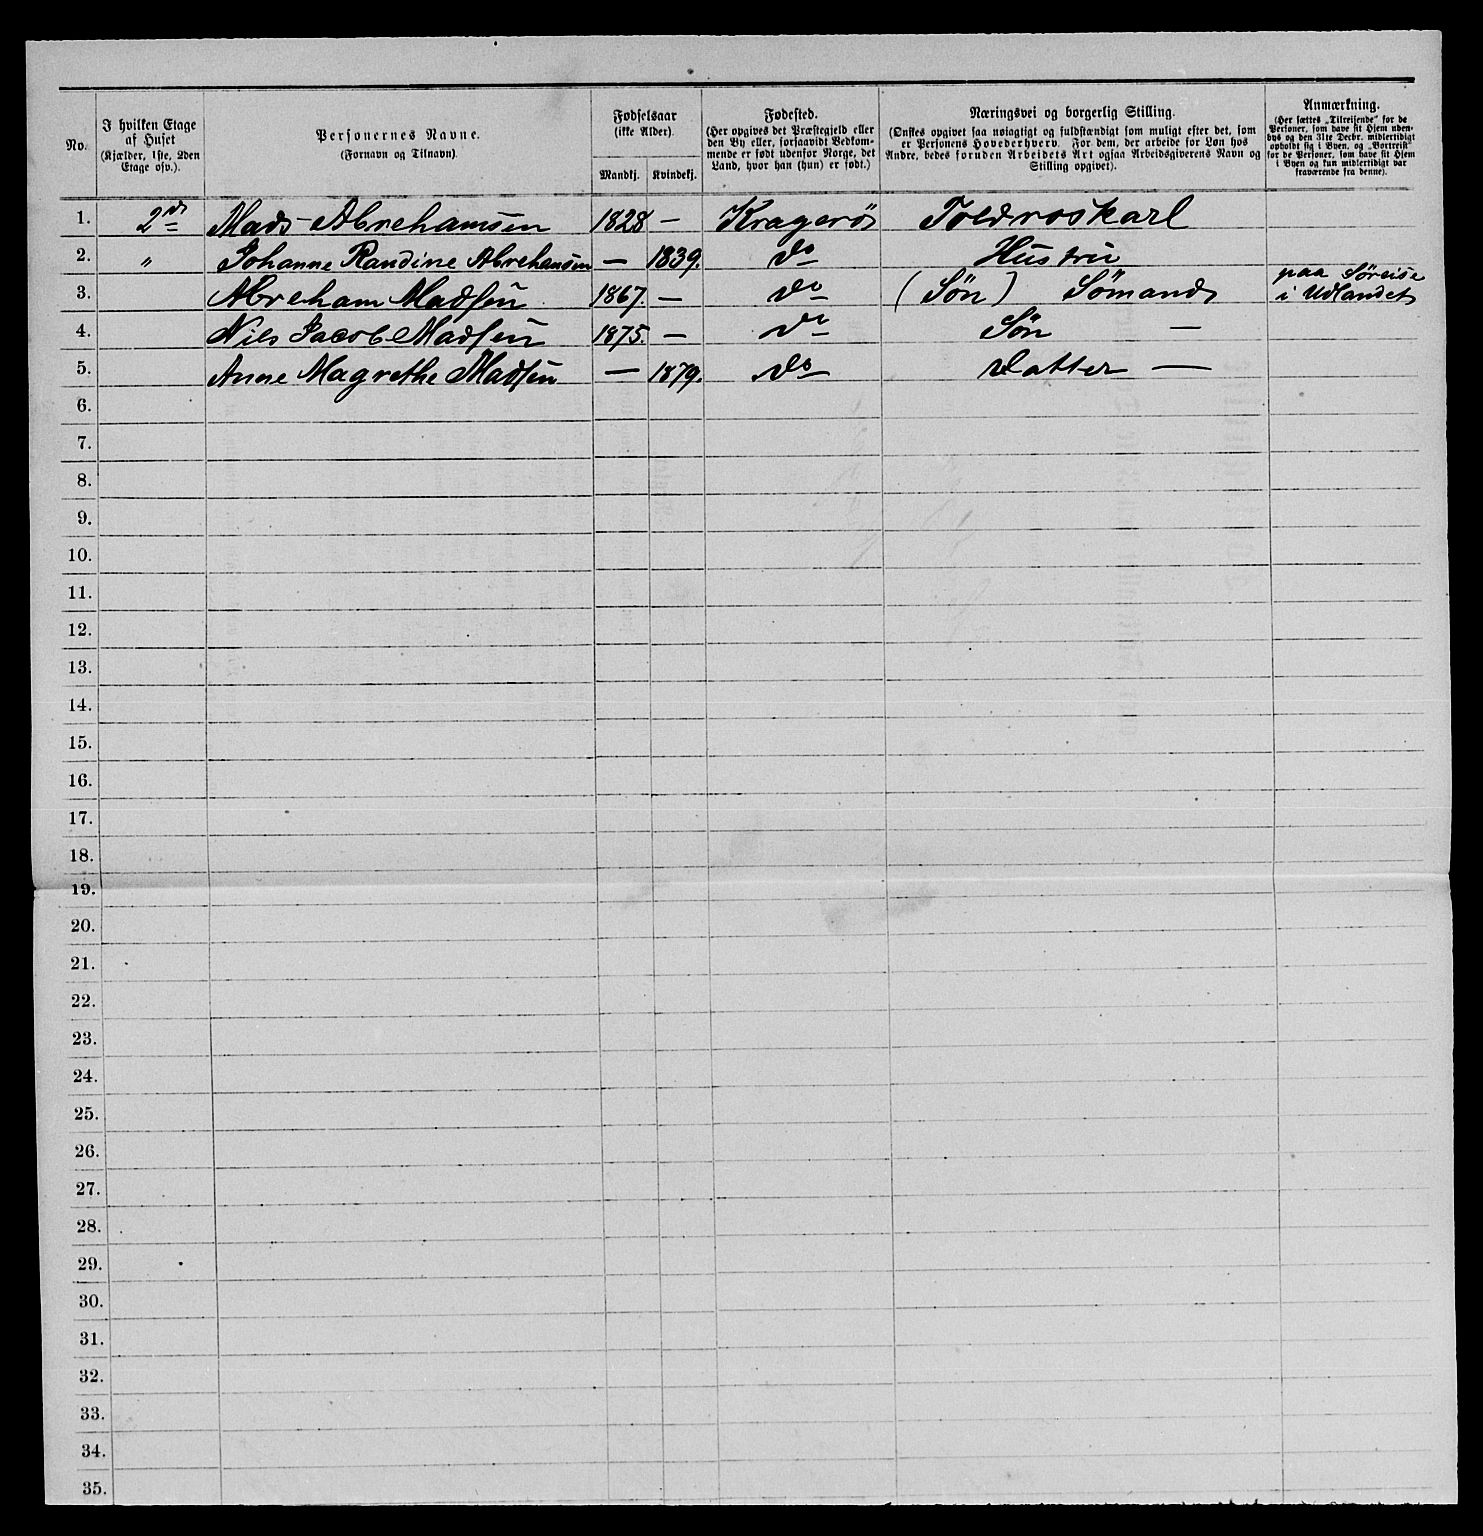 No.
I hvilken Etage
af Huset
(Kjælder, 1ste, 2den
Etage osv.).
Personernes Navne.
(Fornavn og Tilnavn).
Fødselsaar
(ikke Alder).
Mandkj. Kvindekj.
Fødested.
(Her opgives det Præstegjeld eller
den By eller, forsaavidt Vedkom-
mende er født udenfor Norge, det
Land, hvor han (hun) er født.)
Næringsvei og borgerlig Stilling.
(Ønskes opgivet saa nøiagtigt og fuldstændigt som muligt efter det, som
er Personens Hovederhverv. For dem, der arbeide for Løn hos
Andre, bedes foruden Arbeidets Art ogsaa Arbeidsgiverens Navn og
Stilling opgivet).
Anmærkning.
(Her sættes „Tilreisende“ for de
Personer, som have sit Hjem uden-
bys og den 31te Decbr. midlertidigt
opholdt sig i Byen, og „Bortreist“
for de Personer, som have sit Hjem
i Byen og kun midlertidigt var
fraværende fra denne).
1. 2den Mads Abrehamsen 1828 — Kragerö Toldroskarl
2. „ Johanne Randine Abrehamsen — 1839. do Hustru
3. Abreham Madsen 1867. — do (Sön) Sömand paa Söreise
i Udlandet
4. Nils Jacob Madsen 1875. — do Sön —
5. Anne Magrethe Madsen — 1879. do Datter —
6.
7.
8.
9.
10.
11.
12.
13.
14.
15.
16.
17.
18.
19.
20.
21.
22.
23.
24.
25.
26.
27.
28.
29.
30.
31.
32.
33.
34.
35.